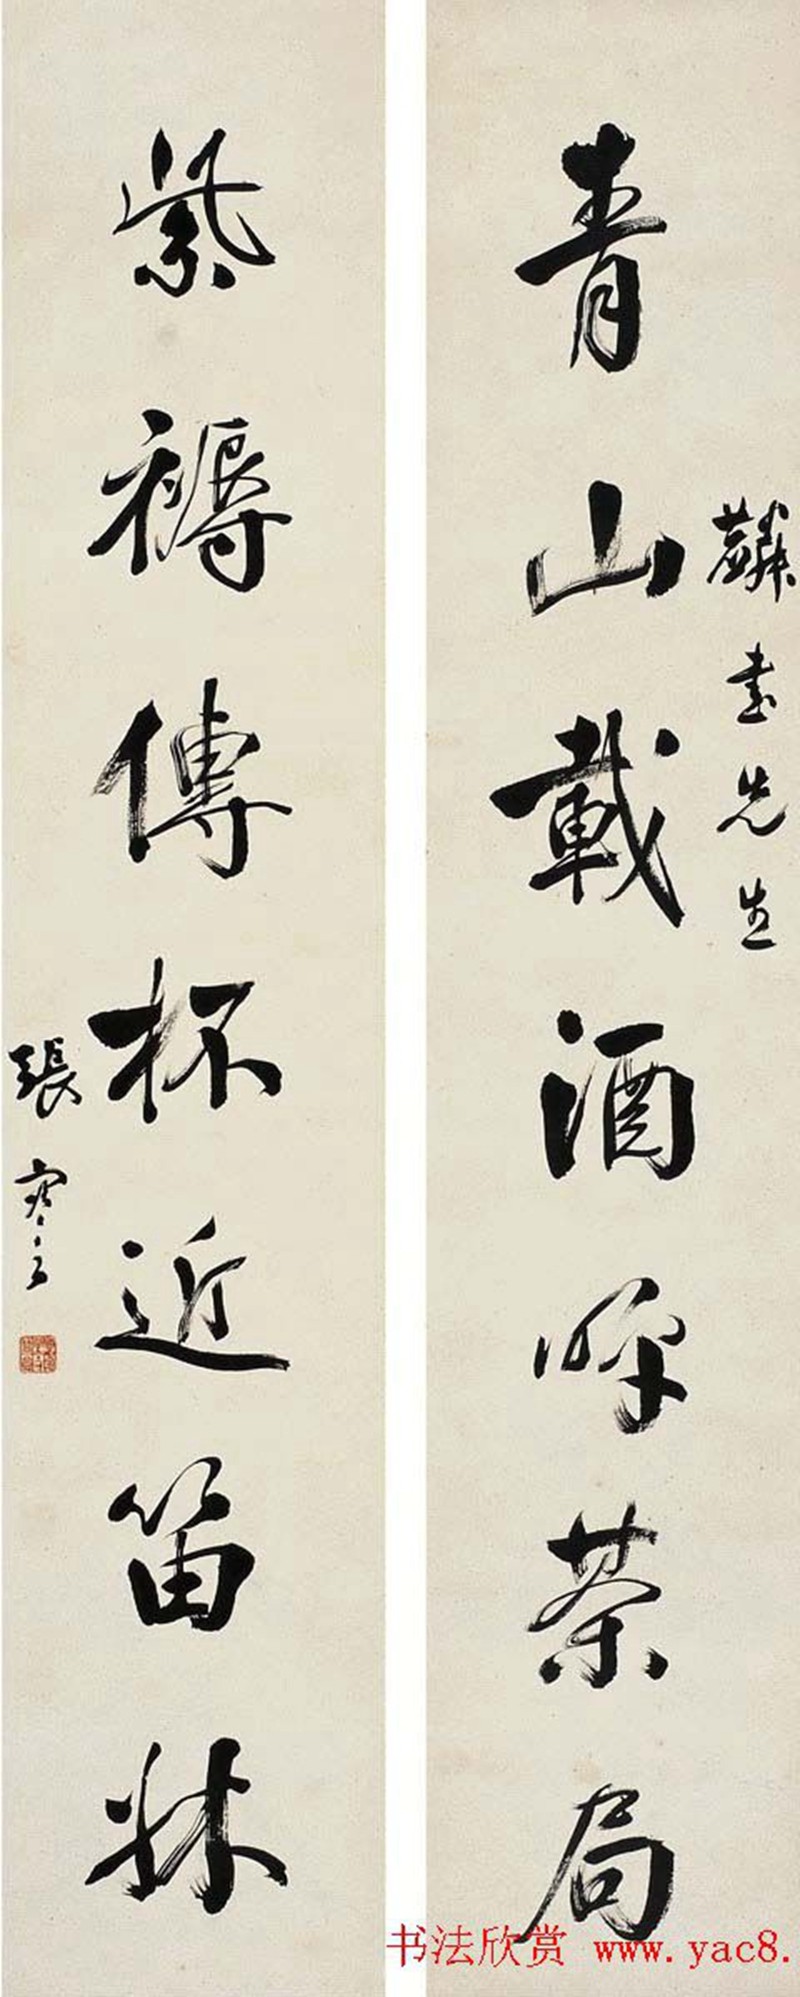 青山載酒呼茶局
麟書先生
紫褥傳杯近笛牀
張謇
书法欣赏 www.yac8.